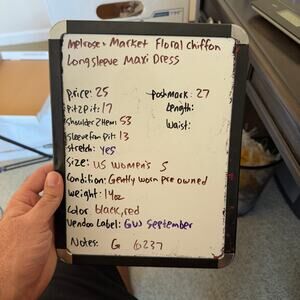 Melrose + Market Floral chiffon
Longsleeve Maxi Dress
price: 25
poshmark: 27
pit2pit: 17
Length:
Shoulder2Hem: 53
Waist:
sleeve from pit: 13
stretch: yes
Size: US Women's S
Condition: Gently worn pre owned
weight: 14oz
Color: black, red
Vendoo Label: GW September
Notes: G 6237